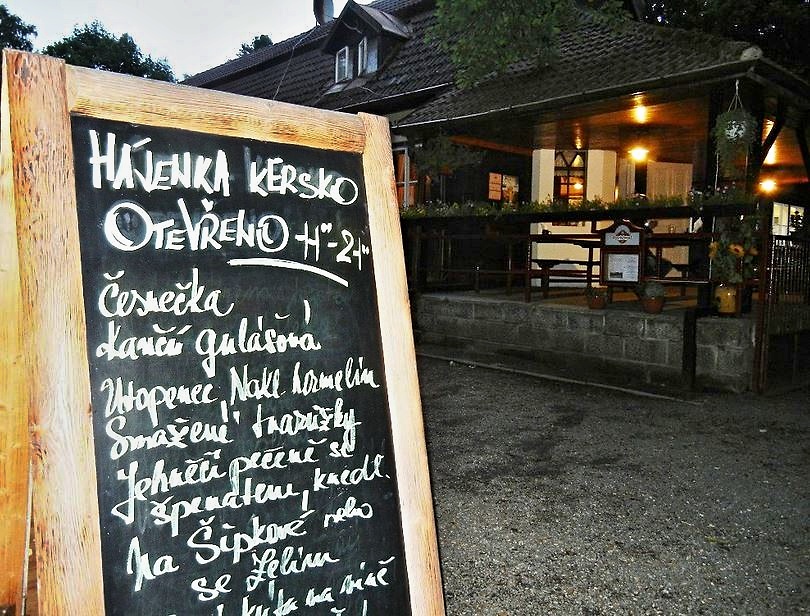 HÁJENKA KERSKO
OTEVŘENO 11°°-21°°
Česnečka
Kančí gulášová
Utopenec, Nakl. hermelín
Smažené tvarůžky
Jehněčí pečeně se
špenátem, knedl.
Na Šípkové nebo
se Zelím
na víně